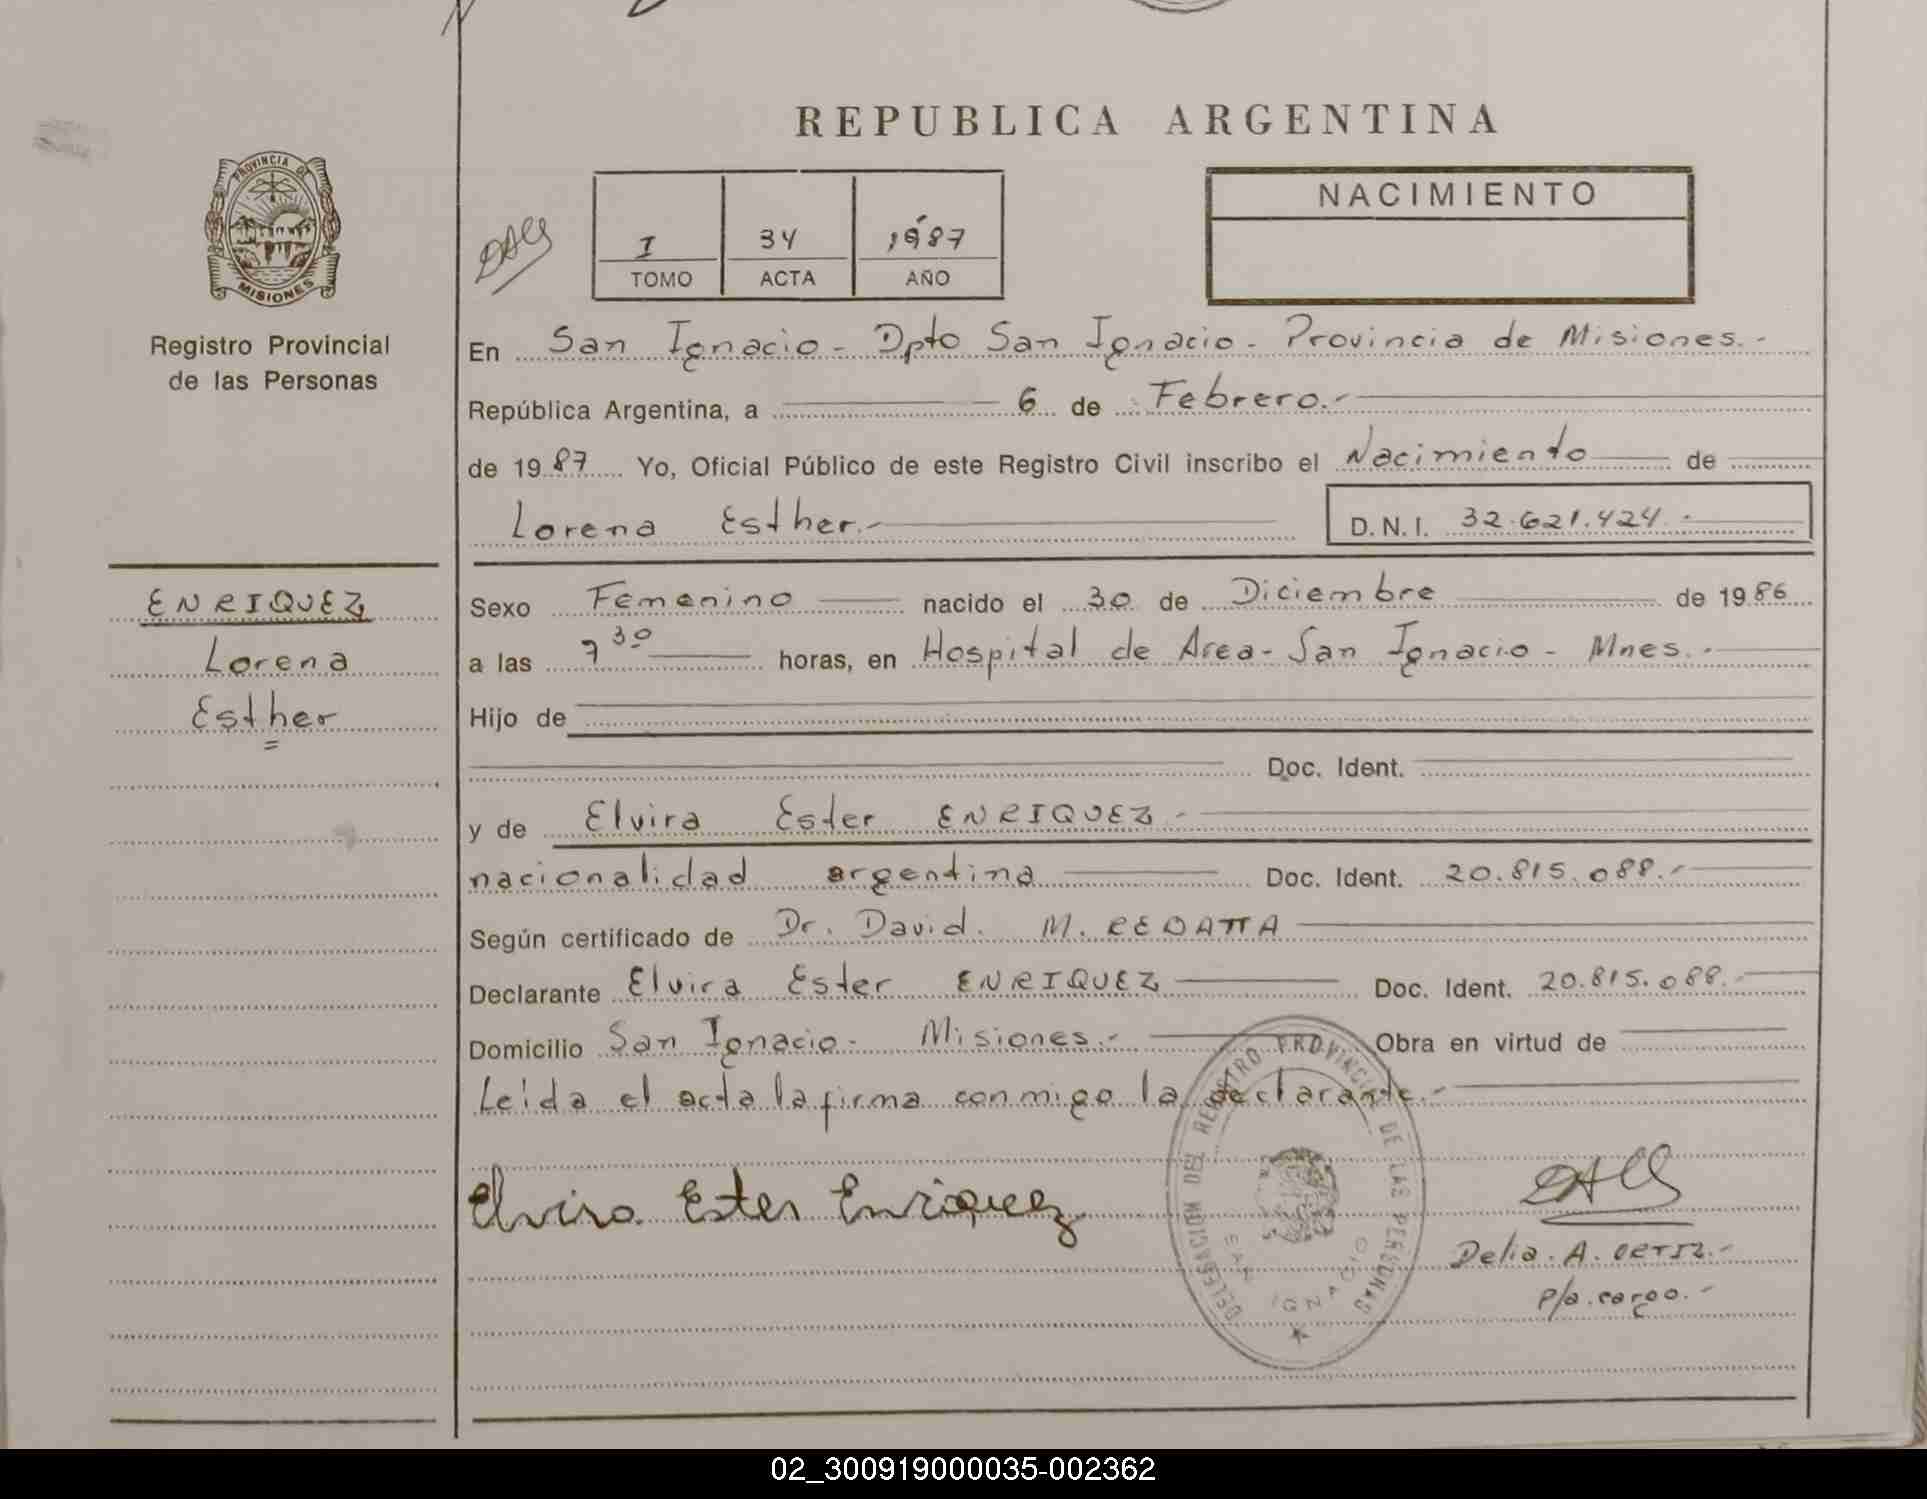 REPUBLICA ARGENTINA
PROVINCIA DE
MISIONES
Registro Provincial
de las Personas
I 34 1987
TOMO ACTA AÑO
NACIMIENTO
En San Ignacio - Dpto San Ignacio - Provincia de Misiones.-
República Argentina, a 6 de Febrero.-
de 1987 Yo, Oficial Público de este Registro Civil inscribo el Nacimiento de
Lorena Esther.- D.N.I. 32.621.424.-
ENRIQUEZ
Lorena
Esther
Sexo Femenino nacido el 30 de Diciembre de 1986
a las 7 30 horas, en Hospital de Area - San Ignacio - Mnes.-
Hijo de
Doc. Ident.
y de Elvira Ester ENRIQUEZ.-
nacionalidad argentina Doc. Ident. 20.815.088.-
Según certificado de Dr. David. M. REDATTA
Declarante Elvira Ester ENRIQUEZ Doc. Ident. 20.815.088.-
Domicilio San Ignacio - Misiones.- Obra en virtud de
Leída el acta la firma conmigo la declarante.-
Elvira Ester Enriquez
DELEGACION DEL REGISTRO PROVINCIAL DE LAS PERSONAS
SAN IGNACIO
Delia. A. ORTIZ.-
p/a. cargo.-
02_300919000035-002362